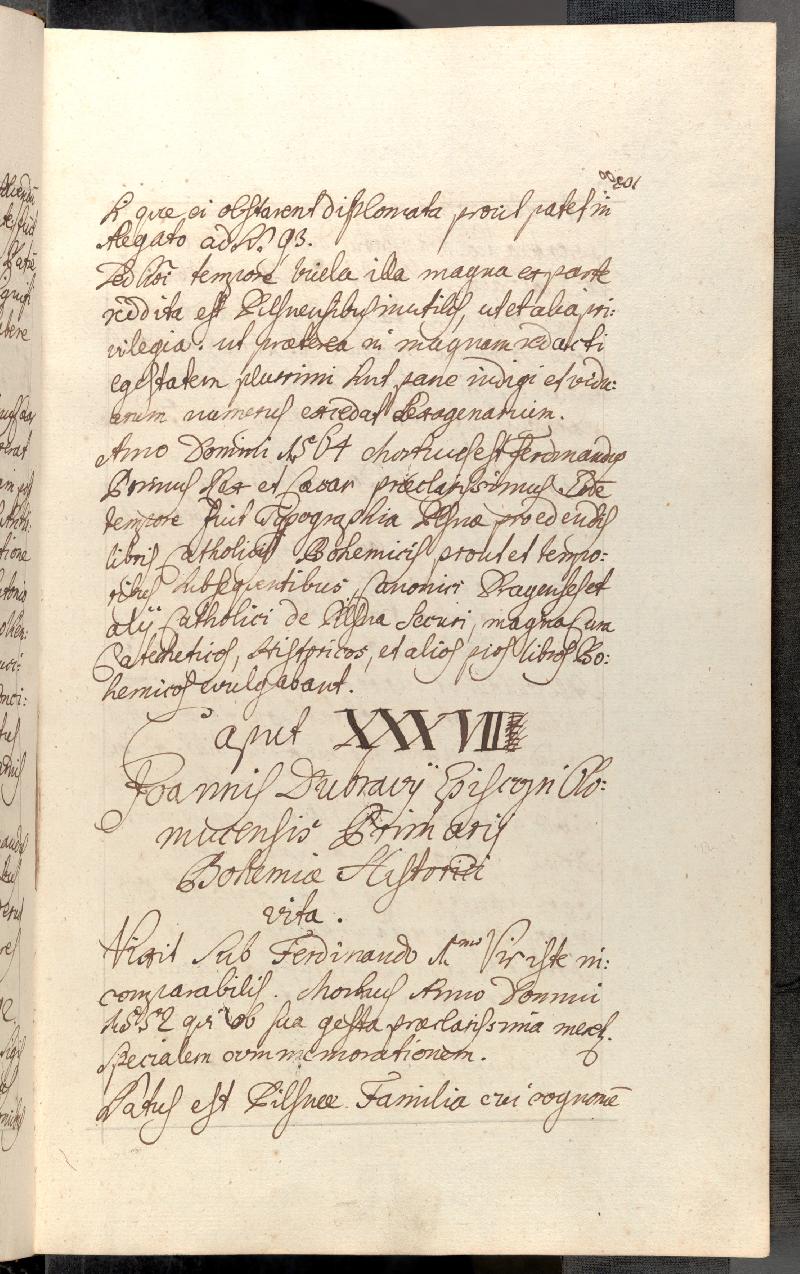 & quæ ei obstarent diplomata prout patet in
Allegato ad N. 93.
tempore illa magna ex parte
reddita est Pilsnensibus inutilis, ut et alia pri:
vilegia: ut præterea in magnam redacti
egestatem plurimi sint pane indigi et vidu:
arum numerus excedat Sexagenarium.
Anno Domini 1564 Mortuus est Ferdinandus
Primus Rex et Cæsar præclarissimus
tempore fuit Typographia Pilsnæ pro edendis
libris Catholicis Bohemicis prout et tempo:
ribus subsequentibus, Canonici Pragenses et
alij Catholici de Pilsna Securi, magna cum
Catecheticos, Historicos, et alios pios libros Bo:
hemicos evulgabant.
Caput XXXVIII
Joannis Dubravij Episcopi Olo:
mucensis Primarij
Bohemiæ Historici
vita.
Vixit sub Ferdinando 1mo Vir iste in:
comparabilis. Mortuus Anno Domini
1552 qui ob sua gesta præclarissima meret.
specialem commemorationem.
Natus est Pilsnæ Familia cui cognomē